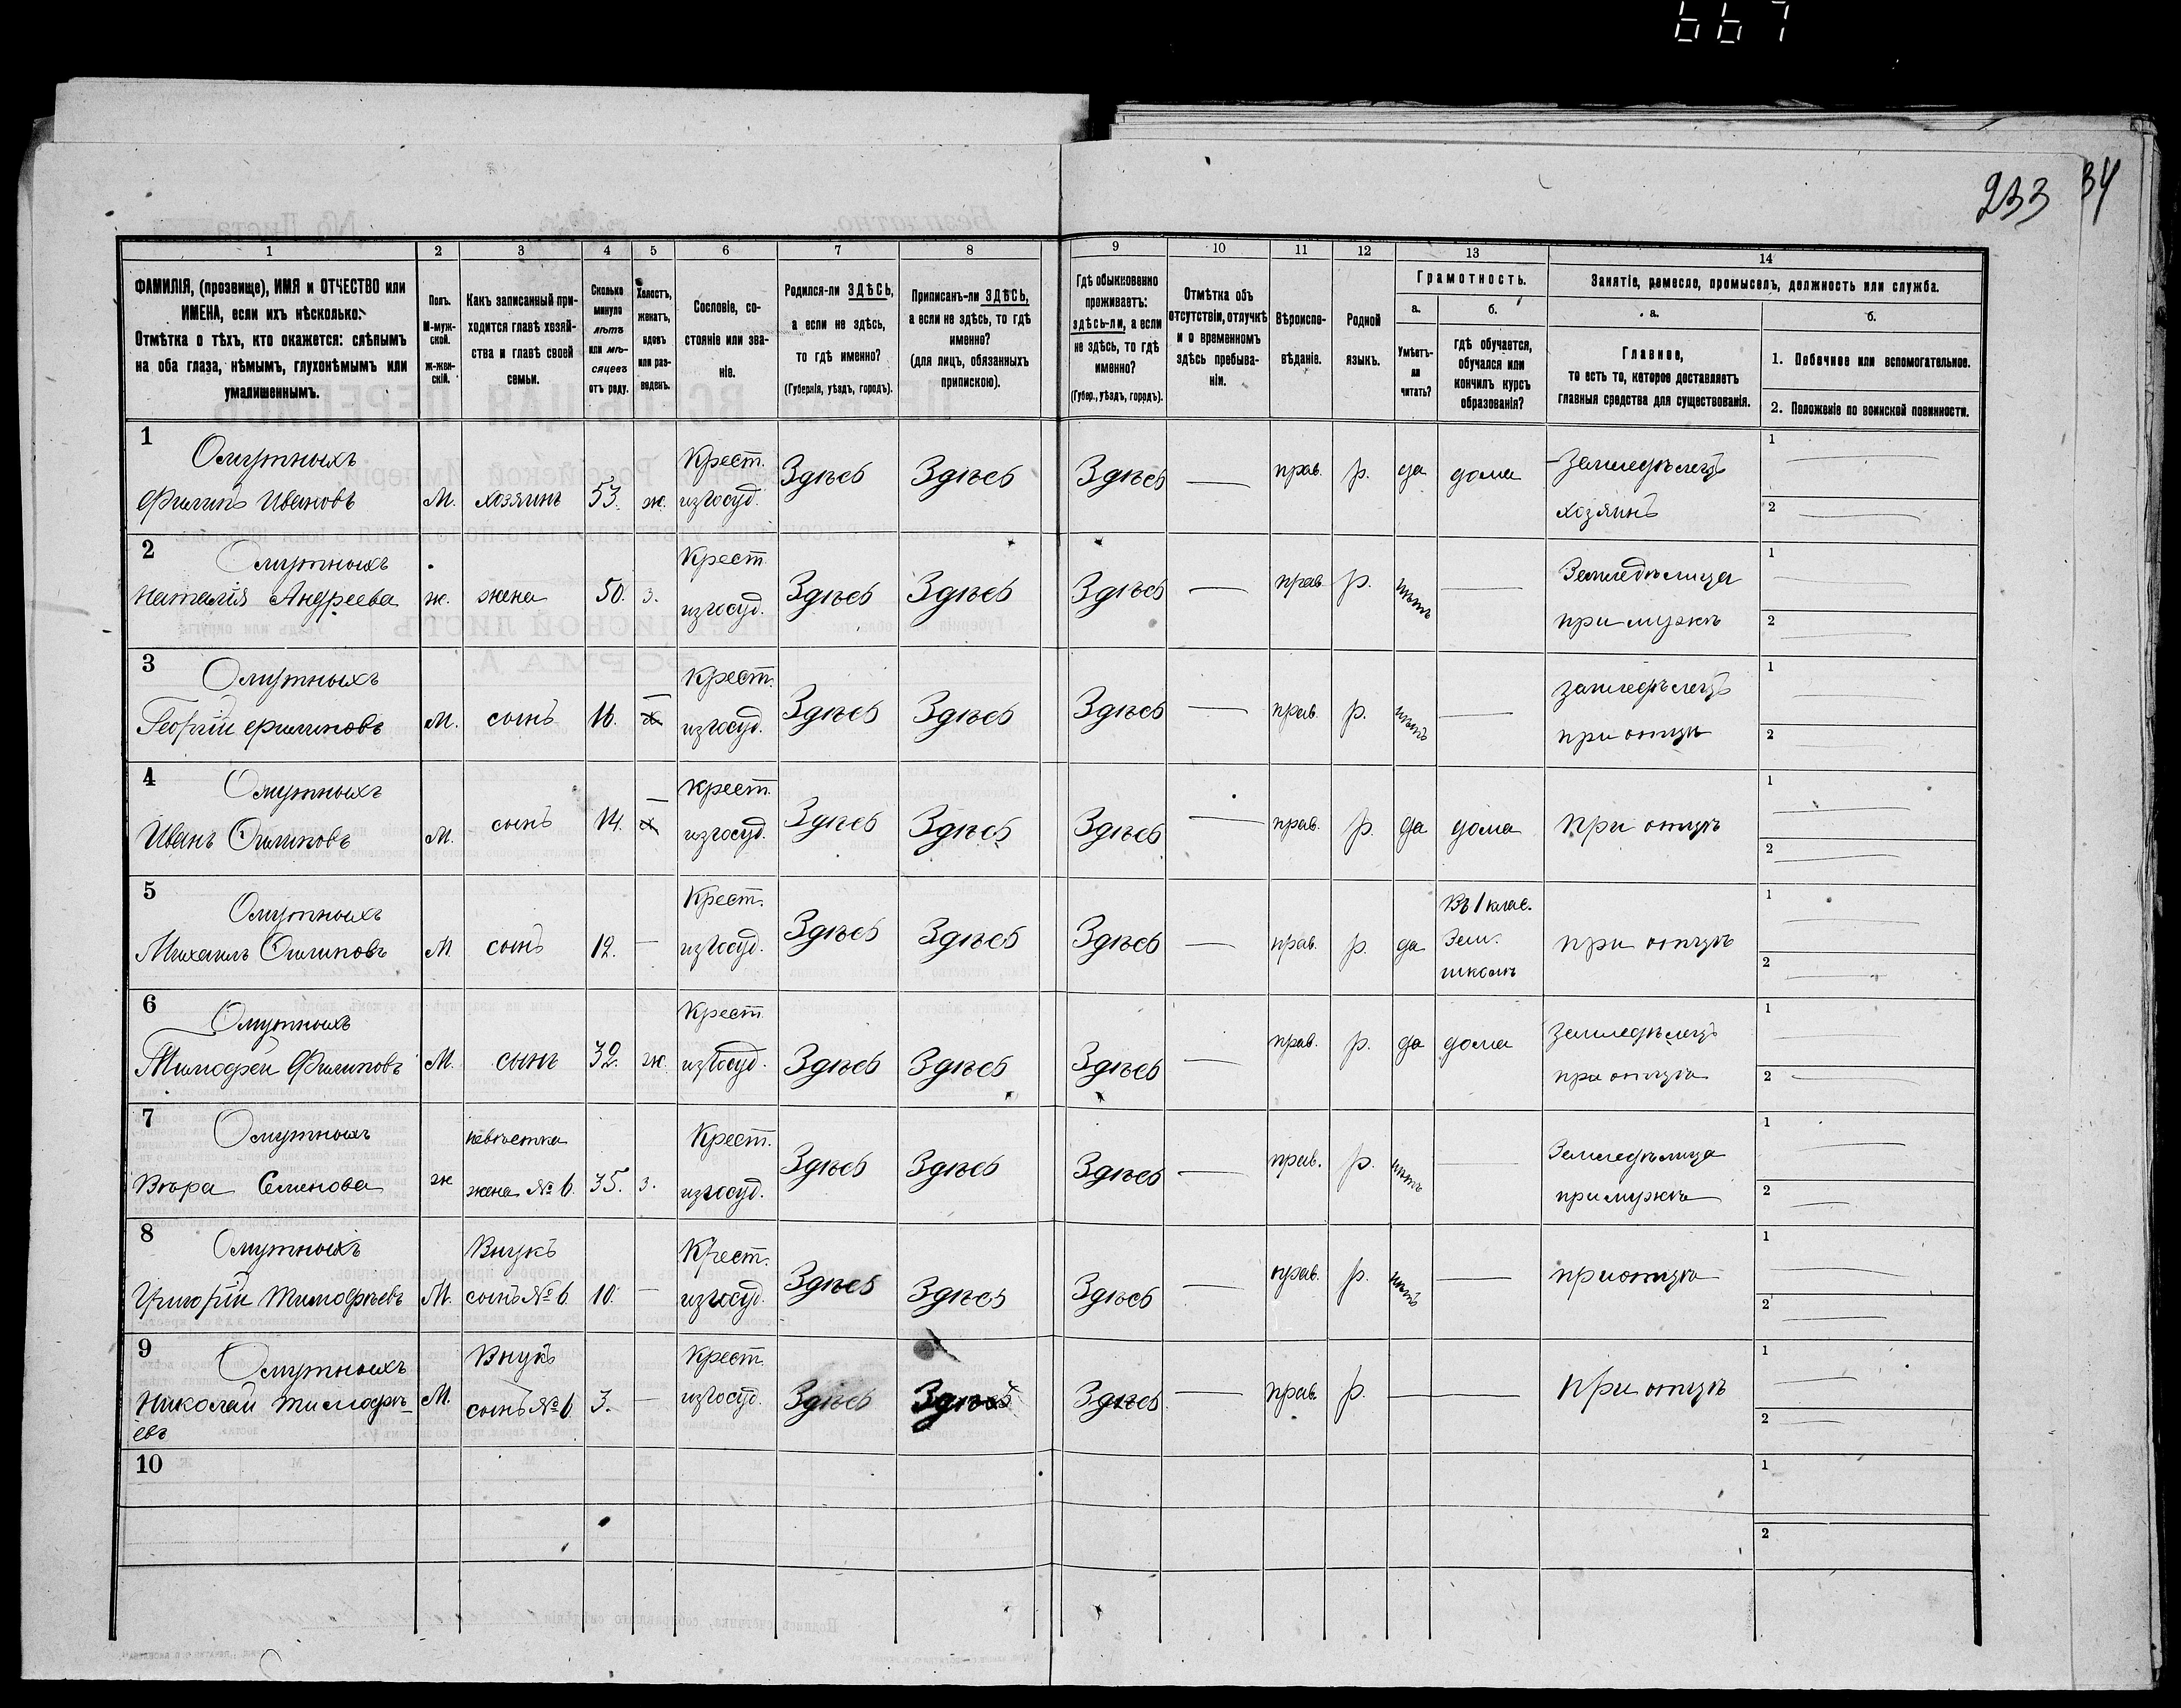 667
233 34
1 2 3 4 5 6 7 8 9 10 11 12 13 14
ФАМИЛІЯ, (прозвище), ИМЯ и ОТЧЕСТВО или
ИМЕНА, если ихъ нѣсколько.
Отмѣтка о тѣхъ, кто окажется: слѣпымъ
на оба глаза, нѣмымъ, глухонѣмымъ или
умалишеннымъ.
Полъ.
М-муж-
ской.
Ж-жен-
скій.
Какъ записанный при-
ходится главѣ хозяй-
ства и главѣ своей
семьи.
Сколько
минуло
лѣтъ
или мѣ-
сяцевъ
отъ роду.
Холостъ,
женатъ,
вдовъ
или раз-
веденъ.
Сословіе, со-
стояніе или зва-
ніе.
Родился-ли ЗДѢСЬ,
а если не здѣсь,
то гдѣ именно?
(Губернія, уѣздъ, городъ).
Приписанъ-ли ЗДѢСЬ,
а если не здѣсь, то гдѣ
именно?
(для лицъ, обязанныхъ
припискою).
Гдѣ обыкновенно
проживаетъ:
здѣсь-ли, а если
не здѣсь, то гдѣ
именно?
(Губер., уѣздъ, городъ).
Отмѣтка объ
отсутствіи, отлучкѣ
и о временномъ
здѣсь пребыва-
ніи.
Вѣроиспо-
вѣданіе.
Родной
языкъ.
Грамотность.
а.
Умѣетъ-
ли
читать?
б.
гдѣ обучается,
обучался или
кончилъ курсъ
образованія?
Занятіе, ремесло, промыселъ, должность или служба.
а.
Главное,
то есть то, которое доставляетъ
главныя средства для существованія.
б.
1. Побочное или вспомогательное.
2. Положеніе по воинской повинности.
1
Омутныхъ
Филипъ Ивановъ М. хозяинъ 53. ж. Крест.
изъ госуд. Здѣсь Здѣсь Здѣсь — прав. р. да дома Земледѣлецъ
хозяинъ 1 — 2 —
2
Омутныхъ
Наталія Андреева ж. жена 50. з. Крест
изъ госуд. Здѣсь Здѣсь Здѣсь — прав р. нѣтъ — Земледѣлица
при мужѣ 1 — 2 —
3
Омутныхъ
Георгій Филиповъ М. сынъ 16. — Крест.
изъ госуд. Здѣсь Здѣсь Здѣсь — прав. р. нѣтъ — земледѣлецъ
при отцѣ 1 — 2 —
4
Омутныхъ
Иванъ Филиповъ М. сынъ 14. — Крест.
изъ госуд. Здѣсь Здѣсь Здѣсь — прав. р. да дома при отцѣ 1 — 2 —
5
Омутныхъ
Михаилъ Филиповъ М сынъ 12. — Крест.
изъ госуд. Здѣсь Здѣсь Здѣсь — прав. р. да Въ 1 клас.
Зем.
школѣ при отцѣ 1 — 2 —
6
Омутныхъ
Тимофей Филиповъ М. сынъ 32. ж. Крест
изъ госуд. Здѣсь Здѣсь Здѣсь — прав. р. да дома Земледѣлецъ
при отцѣ 1 — 2 —
7
Омутныхъ
Вѣра Семенова ж невѣстка
жена № 6. 35. з. Крест.
изъ госуд. Здѣсь Здѣсь Здѣсь — прав. р. нѣтъ — Земледѣлица
при мужѣ 1 — 2 —
8
Омутныхъ
Григорій Тимофѣевъ М. Внукъ
сынъ № 6 10. — Крест.
изъ госуд. Здѣсь Здѣсь Здѣсь — прав. р. нѣтъ — при отцѣ 1 — 2 —
9
Омутныхъ
Николай Тимофѣ-
евъ М. Внукъ
сынъ № 6 3. — Крест.
изъ госуд. Здѣсь Здѣсь Здѣсь — прав. р. — — при отцѣ 1 — 2 —
10
1
2